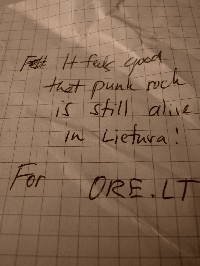 It feels good
that punk rock
is still alive
in Lietuva!
For ORE.LT